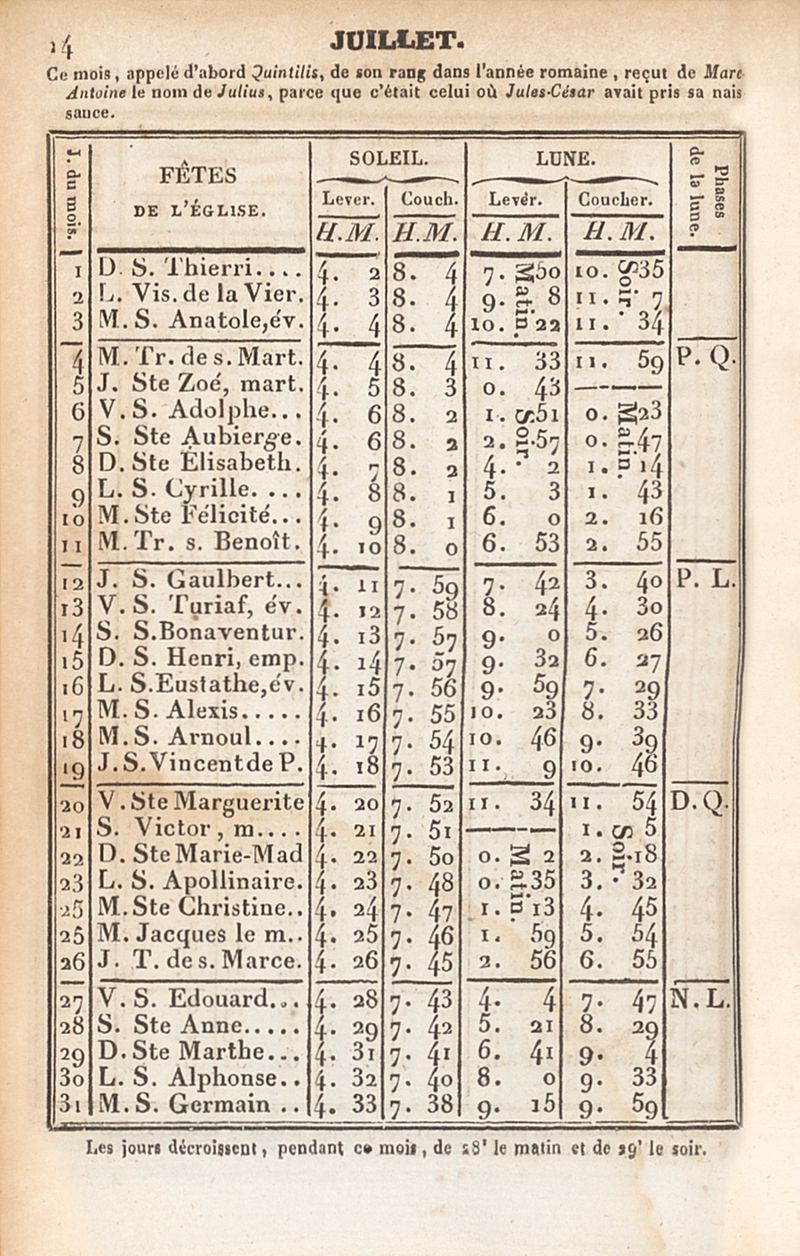 14
JUILLET.
Ce mois, appelé d'abord Quintilis, de son rang dans l'année romaine, reçut de Marc
Antoine le nom de Julius, parce que c'était celui où Jules-César avait pris sa nais
sauce.
J. du mois. FÊTES DE L'ÉGLISE. SOLEIL. LUNE. Phases de la lune.
Lever. Couch. Levér. Coucher.
H. M. H. M. H. M. H. M.
1 D. S. Thierri.... 4. 2 8. 4 7. Matin. 50 10. Soir. 35
2 L. Vis. de la Vier. 4. 3 8. 4 9. 8 11. 7
3 M. S. Anatole, év. 4. 4 8. 4 10. 22 11. 34
4 M. Tr. de s. Mart. 4. 4 8. 4 11. 33 11. 59 P. Q.
5 J. Ste Zoé, mart. 4. 5 8. 3 0. 43 ———
6 V. S. Adolphe... 4. 6 8. 2 1. Soir. 51 0. Matin. 23
7 S. Ste Aubierge. 4. 6 8. 2 2. 57 0. 47
8 D. Ste Élisabeth. 4. 7 8. 2 4. 2 1. 14
9 L. S. Cyrille. ... 4. 8 8. 1 5. 3 1. 43
10 M. Ste Félicité... 4. 9 8. 1 6. 0 2. 16
11 M. Tr. s. Benoît. 4. 10 8. 0 6. 53 2. 55
12 J. S. Gaulbert... 4. 11 7. 59 7. 42 3. 40 P. L.
13 V. S. Turiaf, év. 4. 12 7. 58 8. 24 4. 30
14 S. S. Bonaventur. 4. 13 7. 57 9. 0 5. 26
15 D. S. Henri, emp. 4. 14 7. 57 9. 32 6. 27
16 L. S. Eustathe, év. 4. 15 7. 56 9. 59 7. 29
17 M. S. Alexis..... 4. 16 7. 55 10. 23 8. 33
18 M. S. Arnoul.... 4. 17 7. 54 10. 46 9. 39
19 J. S. Vincent de P. 4. 18 7. 53 11. 9 10. 46
20 V. Ste Marguerite 4. 20 7. 52 11. 34 11. 54 D. Q.
21 S. Victor, m.... 4. 21 7. 51 ——— 1. Soir. 5
22 D. Ste Marie-Mad 4. 22 7. 50 0. Matin. 2 2. 18
23 L. S. Apollinaire. 4. 23 7. 48 0. 35 3. 32
25 M. Ste Christine.. 4. 24 7. 47 1. 13 4. 45
25 M. Jacques le m.. 4. 25 7. 46 1. 59 5. 54
26 J. T. de s. Marce. 4. 26 7. 45 2. 56 6. 55
27 V. S. Edouard... 4. 28 7. 43 4. 4 7. 47 N. L.
28 S. Ste Anne..... 4. 29 7. 42 5. 21 8. 29
29 D. Ste Marthe... 4. 31 7. 41 6. 41 9. 4
30 L. S. Alphonse.. 4. 32 7. 40 8. 0 9. 33
31 M. S. Germain .. 4. 33 7. 38 9. 15 9. 59
Les jours décroissent, pendant ce mois, de 28' le matin et de 29' le soir.